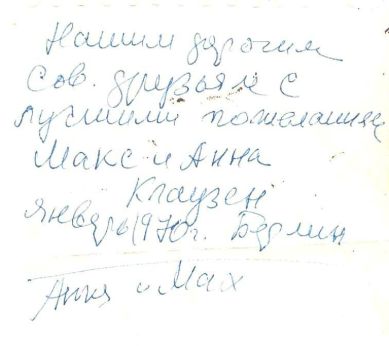 Нашим дорогим
Сов. друзьям с
лучшими пожеланиями
Макс и Анна
Клаузен
январь 1970г. Берлин
Анна и Мах